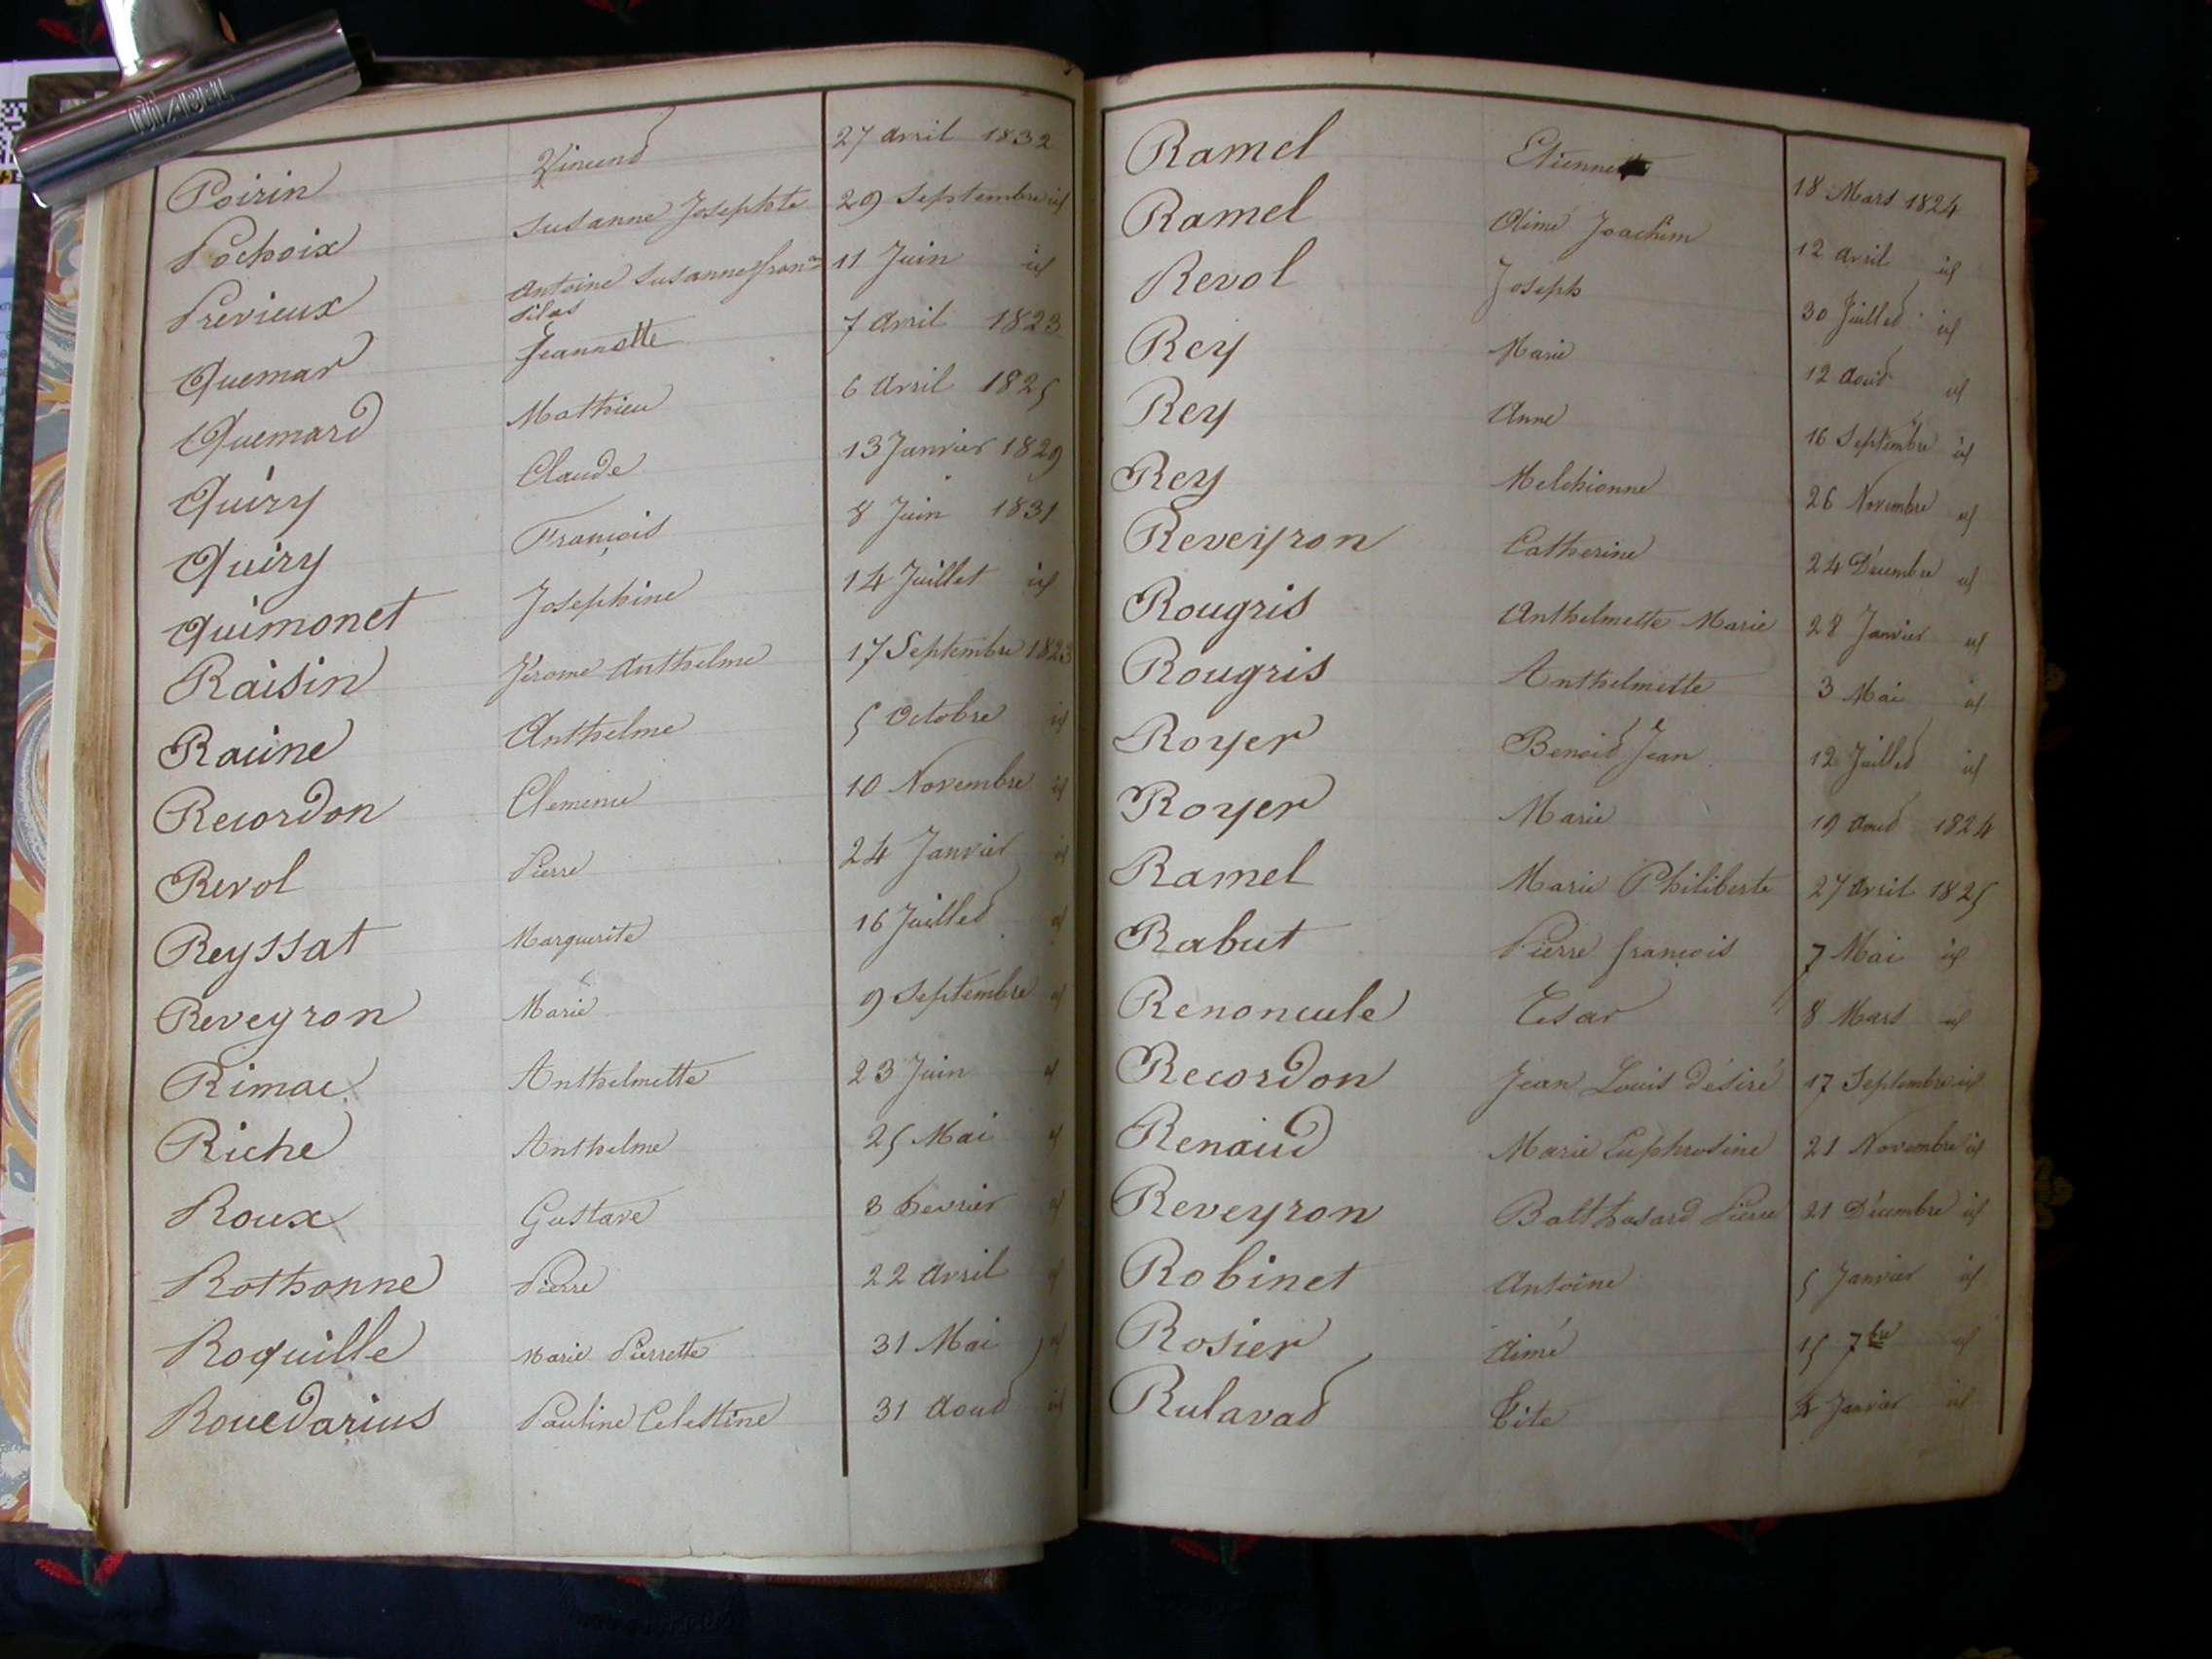 DIABEL
Poirin Vincend 27 avril 1832
Pochoix Susanne Josephte 29 Septembre id
Prévieux Antoine Susanne fran
Silas 11 Juin id
Quemar Jeannette 7 avril 1823
Quemard Mathieu 6 avril 1825
Quiry Claude 13 Janvier 1829
Quiry François 8 Juin 1831
Quimonet Josephine 14 Juillet id
Raisin Jérome Anthelme 17 Septembre 1823
Raúine Anthelme 5 Octobre id
Recordon Clemence 10 Novembre id
Revol Pierre 24 Janvier id
Reyssat Marguerite 16 Juilled id
Reveyron Marie 9 Septembre id
Rimac Anthelmette 23 Juin id
Riche Anthelme 25 Mai id
Roux Gustave 3 fevrier id
Rothonne Pierre 22 avril id
Roquille Marie Pierrette 31 Mai id
Rouedarius Pauline Celestine 31 Aoud id
Ramel Etienne 18 Mars 1824
Ramel Aimé Joachim 12 avril id
Revol Joseph 30 Juilled id
Rey Marie 12 Aoud id
Rey Anne 16 Septembre id
Rey Melchionne 26 Novembre id
Reveyron Catherine 24 Décembre id
Rougris Anthelmette Marie 28 Janvier id
Rougris Anthelmette 3 Mai id
Royer Benoid Jean 12 Juilled id
Royer Marie 19 Aoud 1824
Ramel Marie Philiberte 27 avril 1825
Rabut Pierre françois 7 Mai id
Renoncule Cesar 8 Mars id
Recordon Jean Louis désiré 17 Septembre id
Renaud Marie Euphrosine 21 Novembre id
Reveyron Balthasard Pierre 21 Décembre id
Robinet Antoine 5 Janvier id
Rosier Aimé 15 7bre id
Rulavad Tite 4 Janvier id